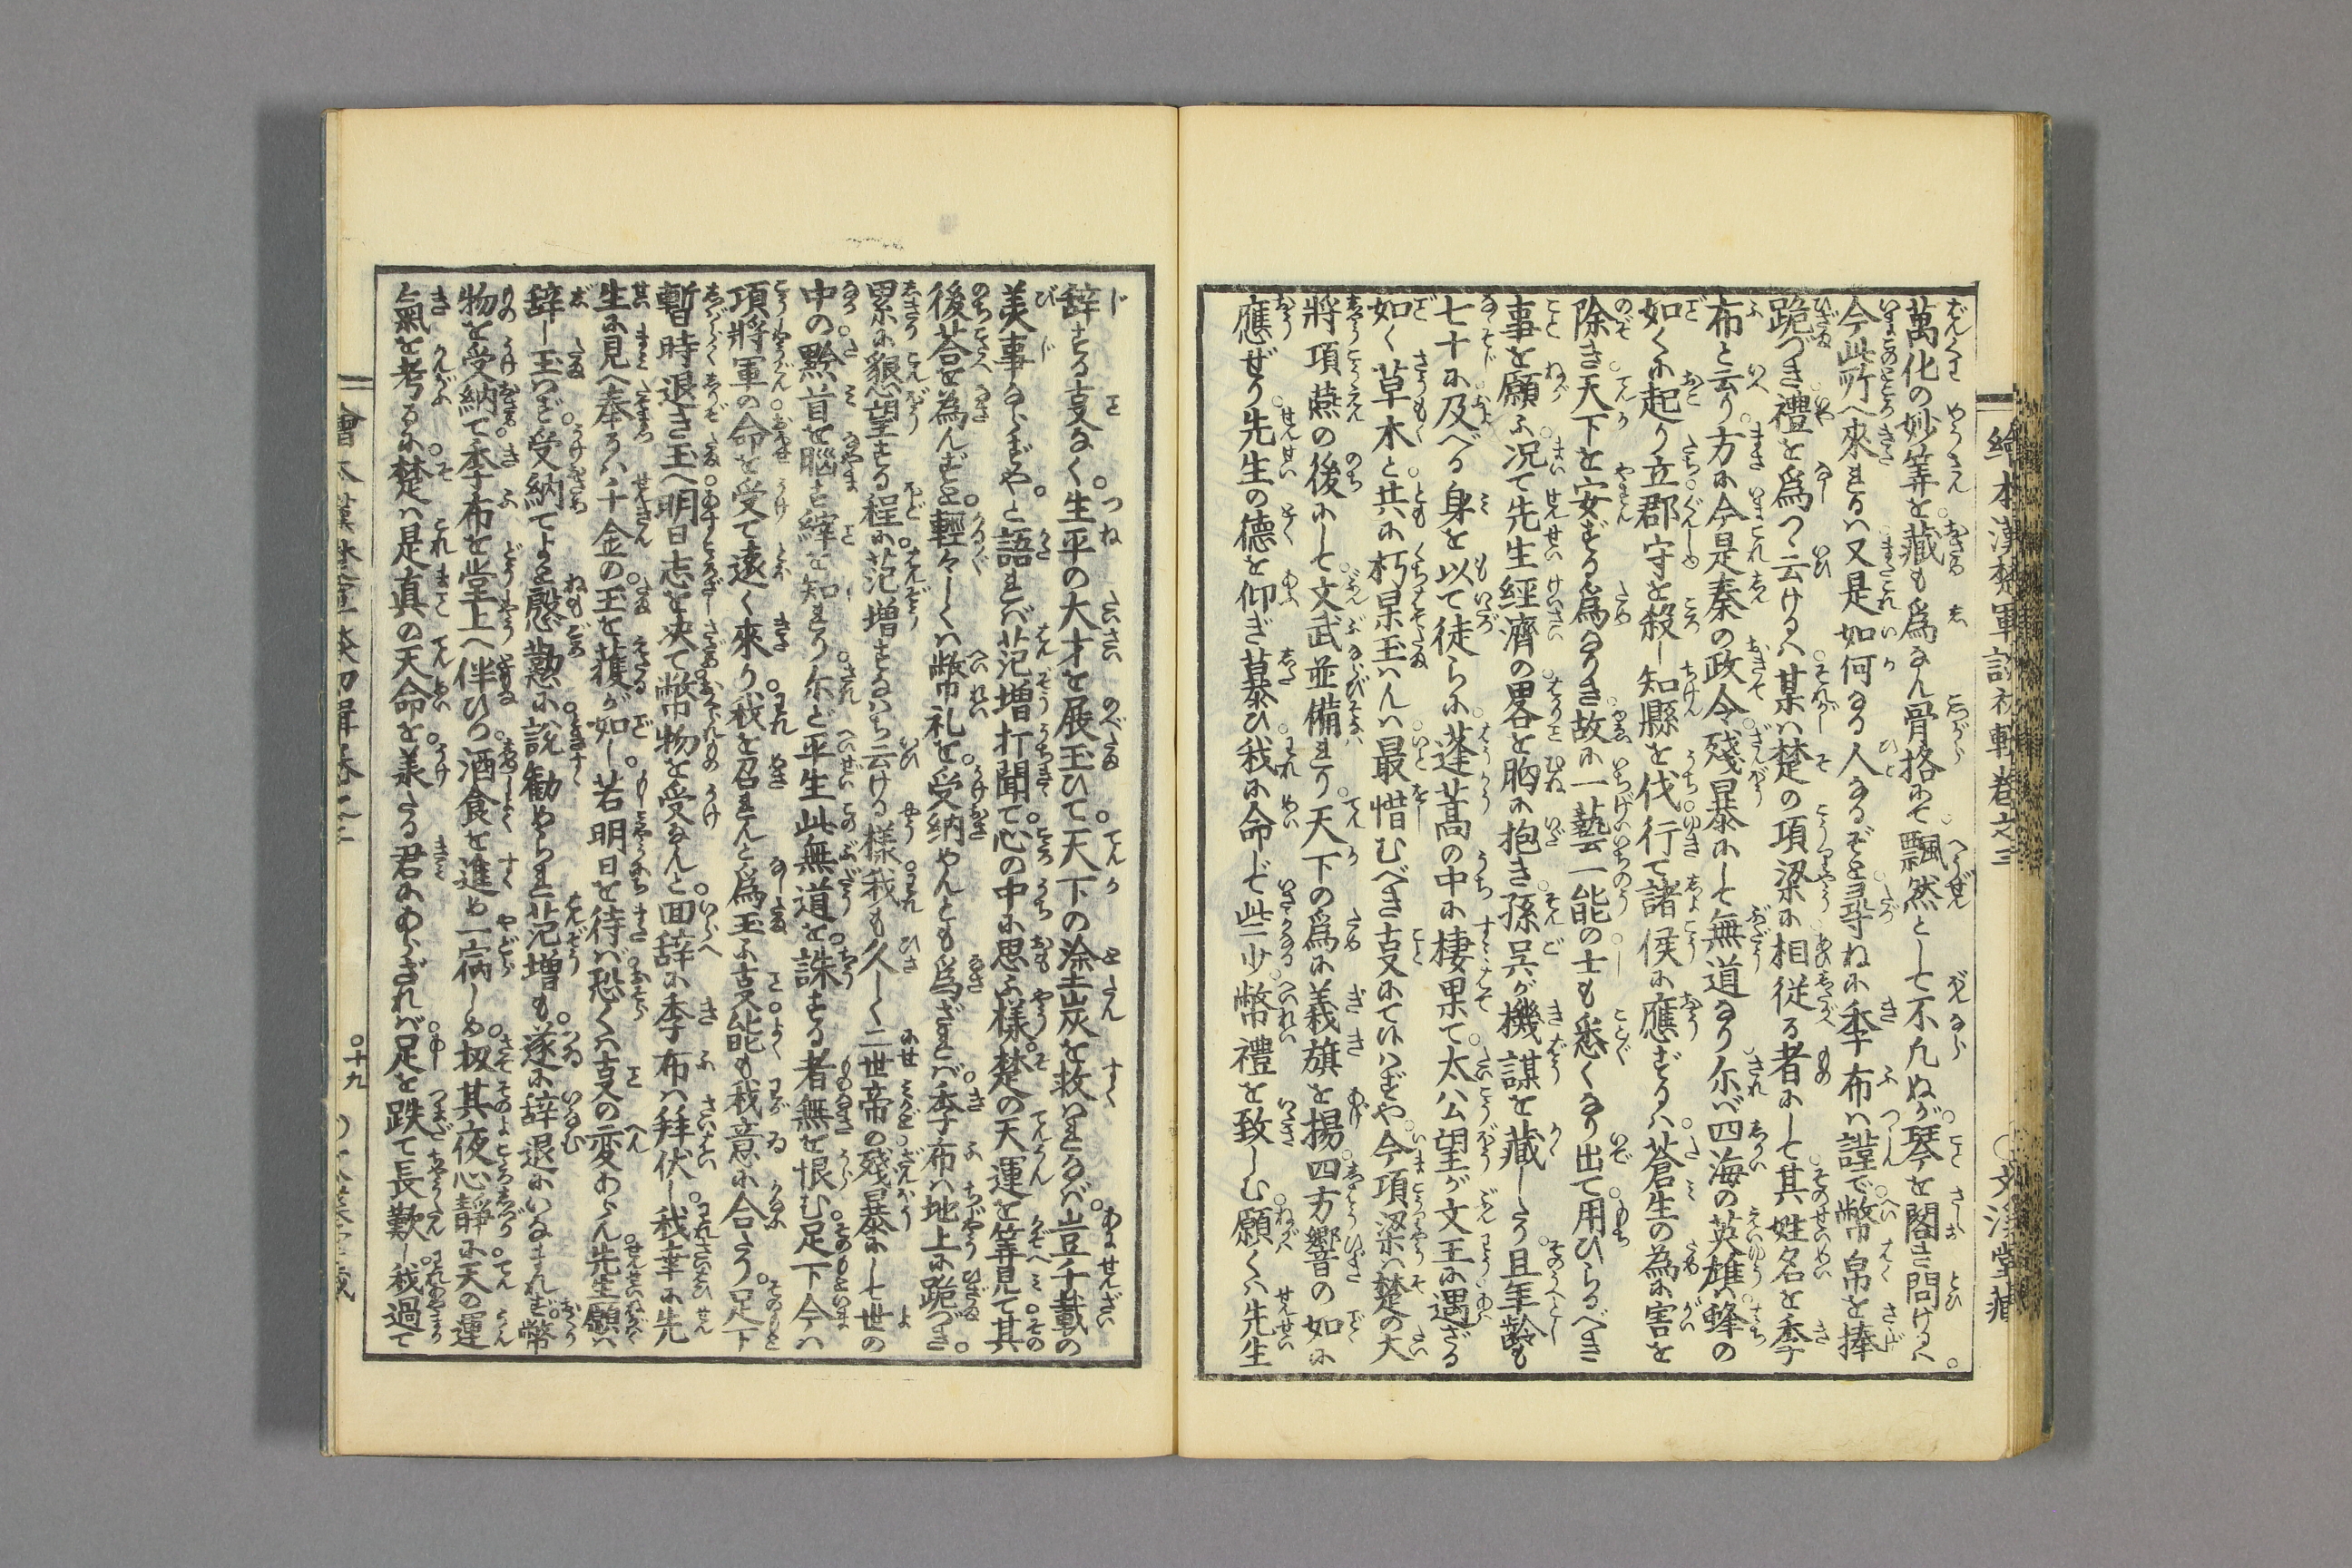 繪本漢楚軍談初輯卷之三 ○文溪堂藏
萬化の妙筭を藏も爲なん骨格にて飄然として不凡ぬが琴を閣き問けるハ
今此所へ來まるハ又是如何なる人なるぞと尋ねに季布ハ謹で幣帛を捧
跪づき禮を爲つゝ云けるハ某ハ楚の項梁に相従る者にして其姓名を季
布と云り方に今是秦の政令殘暴にして無道なり尓バ四海の英雄ハ蜂の
如くに起り立郡守を殺し知縣を伐行て諸侯に應ずるハ蒼生の為に害を
除き天下を安ずる爲なりき故に一藝一能の士も悉くなり出て用ひらるべき
事を願ふ况て先生經濟の畧を胸に抱き孫呉が機謀を藏したり且年齢も
七十に及べる身を以て徒らに蓬蒿の中に棲果て太公望が文王に遇ざる
如く草木と共に朽果玉ハんハ最惜むべき叓にて汁ハずや今項梁ハ楚の大
將項燕の後にして文武並備まり天下の爲に義旗を揚四方響の如に
應ぜり先生の德を仰ぎ慕ひ我に命じて些少幣禮を致しむ願くハ先生
辞する叓なく生平の大才を展玉ひて天下の塗炭を救ハまなバ豈千載の
美事ならずやと語まバ范增打聞て心の中に思ふ樣楚の天運を筭見て其
後荅を為んずと輕々しくハ幣礼を受納やんとも爲ざまバ季布ハ地上に跪づき
累に懇望する程に范增すなハち云ける樣我も久しく二世帝の殘暴にして世の
中の黔首を腦す繂を知まり尓ど平生此無道を誅する者無を恨む足下今ハ
項將軍の命を受て遠く來り我を召まんと爲玉ふ叓能も我意に合たり足下
暫時退き玉へ明日志を决て幣物を受なんと回辞に季布ハ拜伏し我幸に先
生に見へ奉るハ千金の玉を獲が如し若明日を待バ恐くハ叓の变わらん先生願ハ
辞し玉ハず受納てよと慇懃に説勸めらま范增も遂に辞退にいなまれず幣
物を受納て季布を堂上へ伴ひつ酒食を進め一宿しめ扨其夜心靜に天の運
氣を考るに楚ハ是真の天命を羕たる君にあらざれバ足を跌て長歎し我過て
繪本漢楚軍談初輯卷之三 ○十九